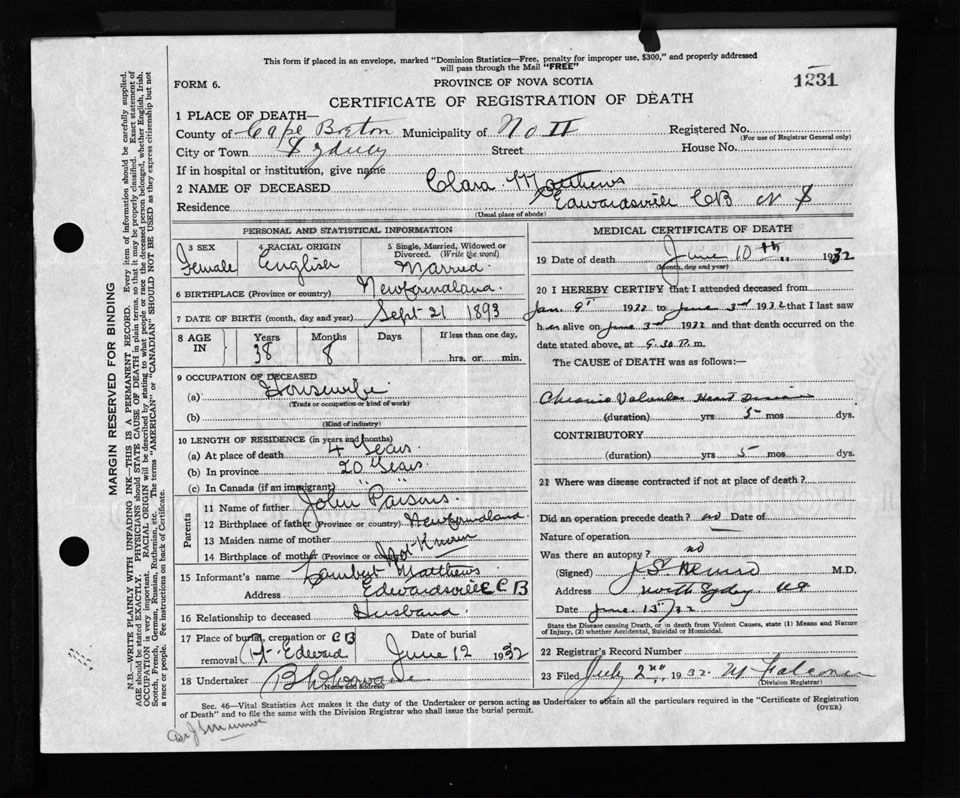 This form if placed in an envelope, marked "Dominion Statistics—Free, penalty for improper use, $300," and properly addressed
will pass through the Mail "FREE"
FORM 6.
PROVINCE OF NOVA SCOTIA
1231
CERTIFICATE OF REGISTRATION OF DEATH
1 PLACE OF DEATH—
County of Cape Breton Municipality of No II Registered No.
(For use of Registrar General only)
City or Town Sydney Street House No.
If in hospital or institution, give name
2 NAME OF DECEASED Clara Matthews
Residence Edwardsville CB N S
(Usual place of abode)
PERSONAL AND STATISTICAL INFORMATION
3 SEX Female
4 RACIAL ORIGIN English
5 Single, Married, Widowed or Divorced. (Write the word) Married.
6 BIRTHPLACE (Province or country) Newfoundland.
7 DATE OF BIRTH (month, day and year) Sept 21 1893
8 AGE IN Years 38 Months 8 Days If less than one day, hrs. or min.
9 OCCUPATION OF DECEASED
(a) Housewife
(Trade or occupation or kind of work)
(b)
(Kind of industry)
10 LENGTH OF RESIDENCE (in years and months)
(a) At place of death 4 Years
(b) In province 20 Years.
(c) In Canada (if an immigrant) " "
Parents
11 Name of father John Parsons.
12 Birthplace of father (Province or country) Newfoundland.
13 Maiden name of mother
14 Birthplace of mother (Province or country) Not Known
15 Informant's name Lambert Matthews
Address Edwardsville C B
16 Relationship to deceased Husband.
17 Place of burial, cremation or removal C B Pt. Edward
Date of burial June 12 1932
18 Undertaker
(Name and address)
MEDICAL CERTIFICATE OF DEATH
19 Date of death June 10th 1932
(Month, day and year)
20 I HEREBY CERTIFY that I attended deceased from
Jan. 9th 1932 to June 3rd 1932 that I last saw
her alive on June 3rd 1932 and that death occurred on the
date stated above, at 9.30 P. m.
The CAUSE of DEATH was as follows:—
Chronic Valvular Heart Disease
(duration) yrs 5 mos dys.
CONTRIBUTORY
(duration) yrs 5 mos dys.
21 Where was disease contracted if not at place of death?
Did an operation precede death? no Date of
Nature of operation
Was there an autopsy? no
(Signed) M.D.
Address North Sydney NS
Date June 13/32
State the Disease causing Death, or in death from Violent Causes, state (1) Means and Nature
of Injury, (2) whether Accidental, Suicidal or Homicidal.
22 Registrar's Record Number
23 Filed July 2nd 1932.
(Division Registrar)
Sec. 46—Vital Statistics Act makes it the duty of the Undertaker or person acting as Undertaker to obtain all the particulars required in the "Certificate of Registration
of Death" and to file the same with the Division Registrar who shall issue the burial permit.
(OVER)
MARGIN RESERVED FOR BINDING
N.B.—WRITE PLAINLY WITH UNFADING INK—THIS IS A PERMANENT RECORD. Every item of information should be carefully supplied.
AGE should be stated EXACTLY. PHYSICIANS should STATE CAUSE OF DEATH in plain terms, so that it may be properly classified. Exact statement of
OCCUPATION is very important. RACIAL ORIGIN will be described by stating to what people or race the deceased person belonged, whether English, Irish,
Scotch, French, German, Russian, Ruthenian, etc. The terms "AMERICAN" or "CANADIAN" SHOULD NOT BE USED as they express citizenship but not
a race or people. See instructions on back of Certificate.